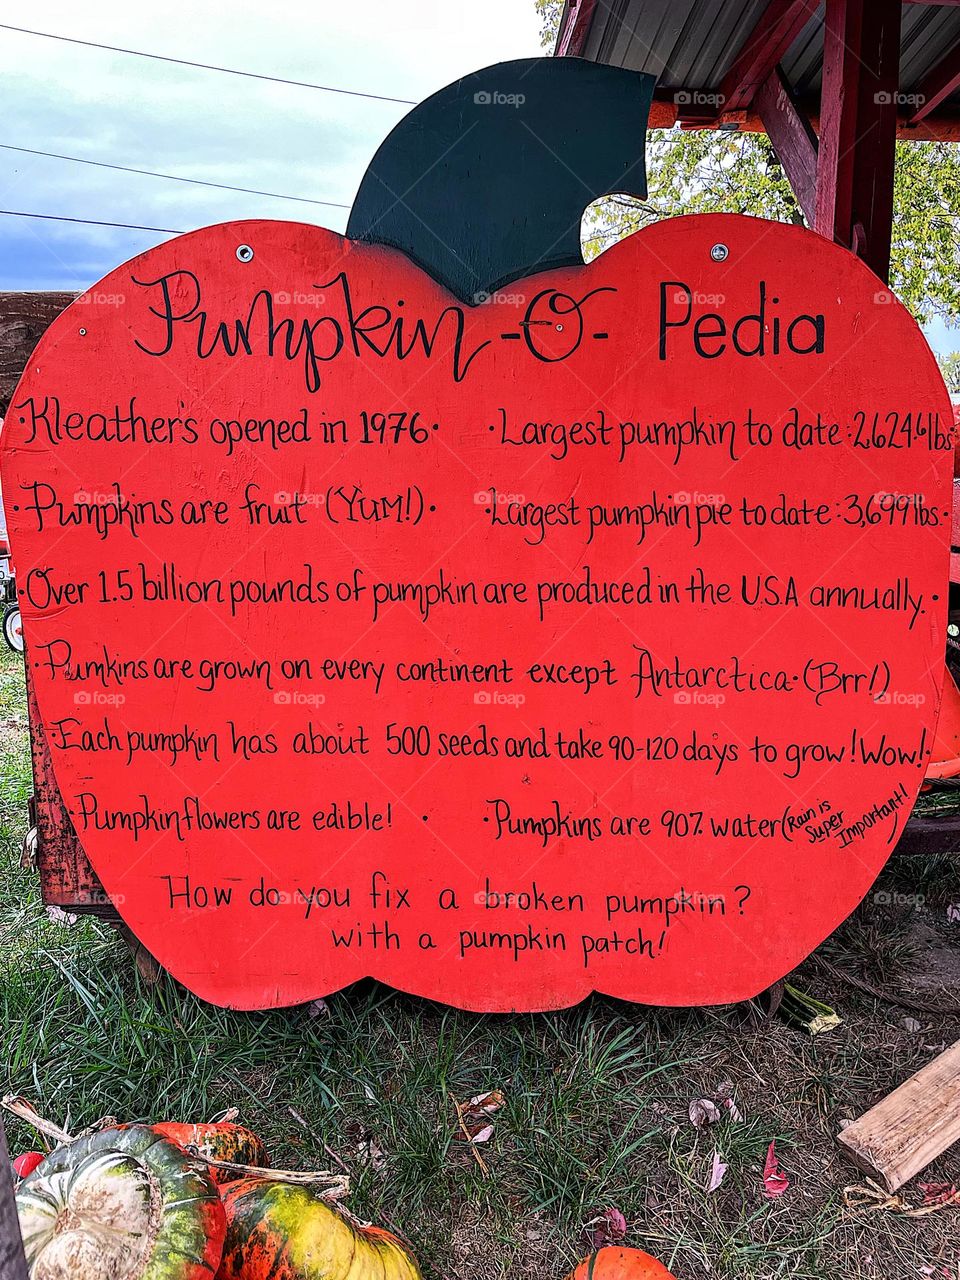 Pumpkin-O-Pedia
·Kleather's opened in 1976· ·Largest pumpkin to date:2624.6lbs·
·Pumpkins are fruit (YUM!)· ·Largest pumpkin pie to date:3,699 lbs.·
·Over 1.5 billion pounds of pumpkin are produced in the U.S.A annually.·
·Pumkins are grown on every continent except Antarctica·(Brr!)
·Each pumpkin has about 500 seeds and take 90-120 days to grow! Wow!·
·Pumpkin flowers are edible! · ·Pumpkins are 90% water (Rain is Super Important!)
How do you fix a broken pumpkin?
with a pumpkin patch!
foap